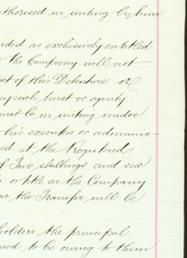 authorised in writing by him
as exclusively entitled
the Company will not
of this Debenture or
such trust or equity
must be in writing under
his executors or adminis
at the Registered
of Two shillings and six
or title as the Company
the Transfer will be
holders the principal
to be owing to them